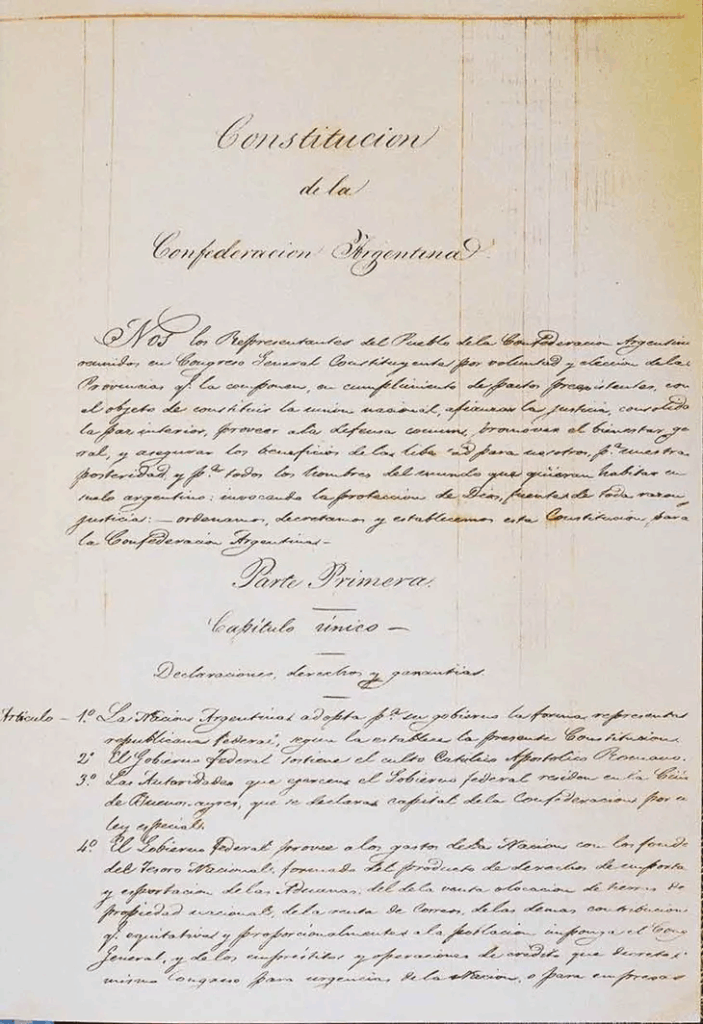 Constitucion
de la
Confederacion Argentina
Nos los Representantes del Pueblo de la Confederacion Argentin
reunidos en Congreso General Constituyente por voluntad y eleccion de las
Provincias q.e la componen, en cumplimiento de pactos preexistentes, con
el objeto de constituir la union nacional, afianzar la justicia, consolida
la paz interior, proveer a la defensa comun, promover el bienestar ge
ral, y asegurar los beneficios de la libe ad para nosotros, p.a nuestra
posteridad, y p.a todos los hombres del mundo que quieran habitar en
suelo argentino: invocando la proteccion de Dios, fuente de toda razon
justicia: — ordenamos, decretamos y establecemos esta Constitucion, para
la Confederacion Argentina. —
Parte Primera.
Capítulo único —
Declaraciones, derechos y garantias
Articulo — 1.º La Nacion Argentina adopta p.a su gobierno la forma representa
republicana federal, segun la establece la presente Constitucion.
2.º El Gobierno federal sostiene el culto Católico Apostólico Romano.
3.º Las Autoridades que ejercen el Gobierno federal residen en la Ciu
de Buenos-ayres, que se declara capital de la Confederacion por u
ley especial.
4.º El Gobierno Federal provee a los gastos de la Nacion con los fondo
del Tesoro Nacional, formado del producto de derechos de importa
y esportacion de las Aduanas, del de la venta o locacion de tierras de
propiedad nacional, de la renta de Correos, de las demas contribucion
q.e equitativa y proporcionalmente a la poblacion imponga el Cong
General, y de los empréstitos y operaciones de credito que decrete
mismo Congreso para urgencias de la Nacion, o para empresas